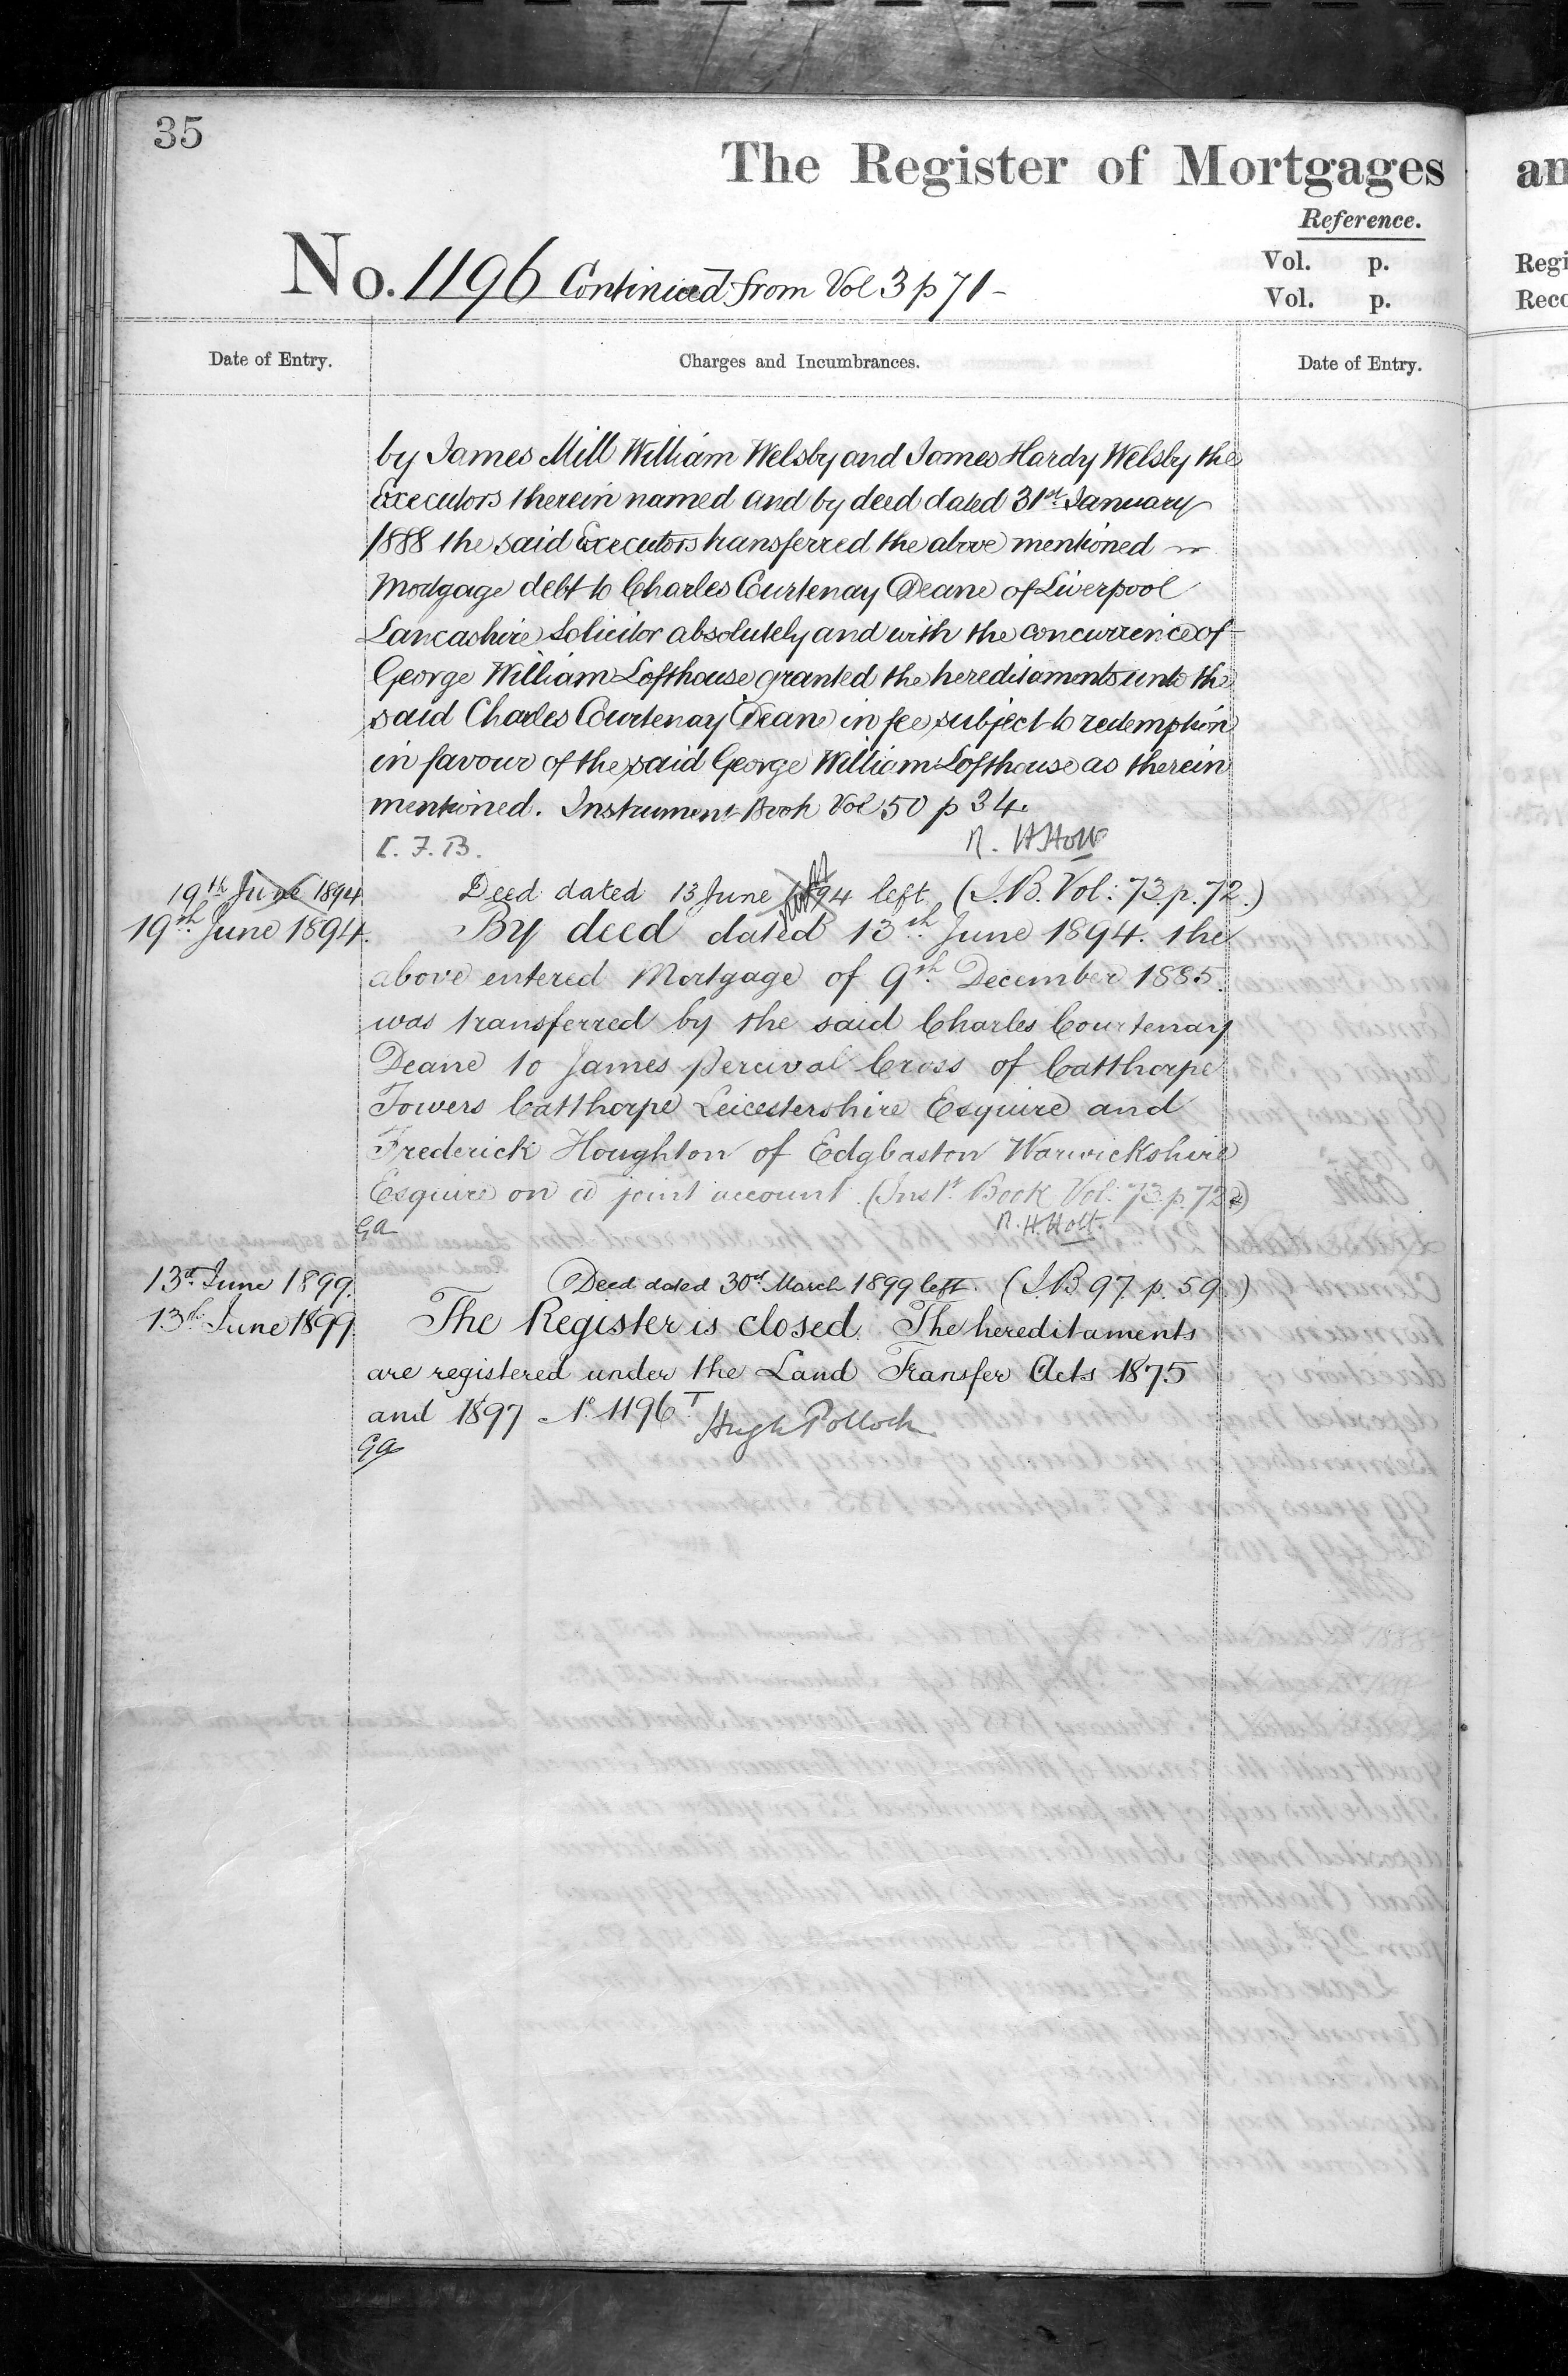 35
The Register of Mortgages
an
Reference.
No. 1196 Continued from Vol 3 p 71 -
Vol. p.
Regi
Vol. p.
Reco
Date of Entry.
Charges and Incumbrances.
Date of Entry.
by James Mill William Welsby and James Hardy Welsby the
Executors therein named and by deed dated 31st January
1888 the said Executors transferred the above mentioned
Mortgage debt to Charles Courtenay Deane of Liverpool
Lancashire Solicitor absolutely and with the concurrence of
George William Lofthouse granted the hereditaments unto the
said Charles Courtenay Deane in fee subject to redemption
in favour of the said George William Lofthouse as therein
mentioned. Instrument Book Vol 50 p 34.
R. H. Holt
19th June 1894 Deed dated 13 June 1894 left (I.B. Vol: 73. p. 72.)
19th June 1894. By deed dated 13th June 1894. the
above entered Mortgage of 9th December 1885.
was transferred by the said Charles Courtenay
Deane to James Percival Cross of Catthorpe
Towers Catthorpe Leicestershire Esquire and
Frederick Houghton of Edgbaston Warwickshire
Esquire on a joint account. (Inst. Book Vol: 73. p. 72)
R. H. Holt.
Ga
13th June 1899. Deed dated 30th March 1899 left. (I.B 97. p. 59.)
13th June 1899. The Register is closed. The hereditaments
are registered under the Land Transfer Acts 1875
and 1897 No. 1196T. Hugh Pollock
Ga